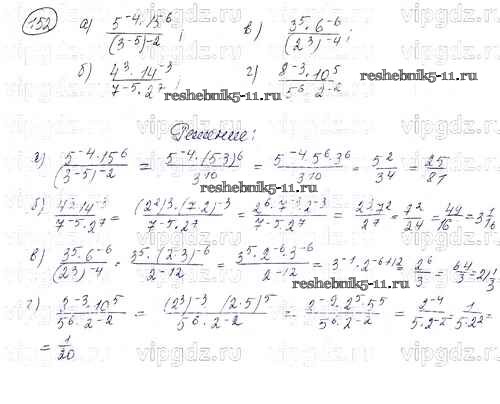 152 а) 5⁻⁴·15⁶/(3⁻⁵)⁻²; в) 3⁵·6⁻⁶/(2³)⁻⁴;
б) 4³·14⁻³/7⁻⁵·2⁷; г) 8⁻³·10⁵/5⁶·2⁻².
reshebnik5-11.ru
reshebnik5-11.ru
Решение:
а) 5⁻⁴·15⁶/(3⁻⁵)⁻² = 5⁻⁴·(5·3)⁶/3¹⁰ = 5⁻⁴·5⁶·3⁶/3¹⁰ = 5²/3⁴ = 25/81
reshebnik5-11.ru
б) 4³·14⁻³/7⁻⁵·2⁷ = (2²)³·(7·2)⁻³/7⁻⁵·2⁷ = 2⁶·7⁻³·2⁻³/7⁻⁵·2⁷ = 2³7²/2⁷ = 7²/2⁴ = 49/16 = 3 1/16
в) 3⁵·6⁻⁶/(2³)⁻⁴ = 3⁵·(2·3)⁻⁶/2⁻¹² = 3⁵·2⁻⁶·3⁻⁶/2⁻¹² = 3⁻¹·2⁻⁶⁺¹² = 2⁶/3 = 64/3 = 21 1/3
reshebnik5-11.ru
г) 8⁻³·10⁵/5⁶·2⁻² = (2³)⁻³·(2·5)⁵/5⁶·2⁻² = 2⁻⁹·2⁵·5⁵/5⁶·2⁻² = 2⁻⁴/5·2⁻² = 1/5·2² =
= 1/20
vipgdz.ru vipgdz.ru vipgdz.ru